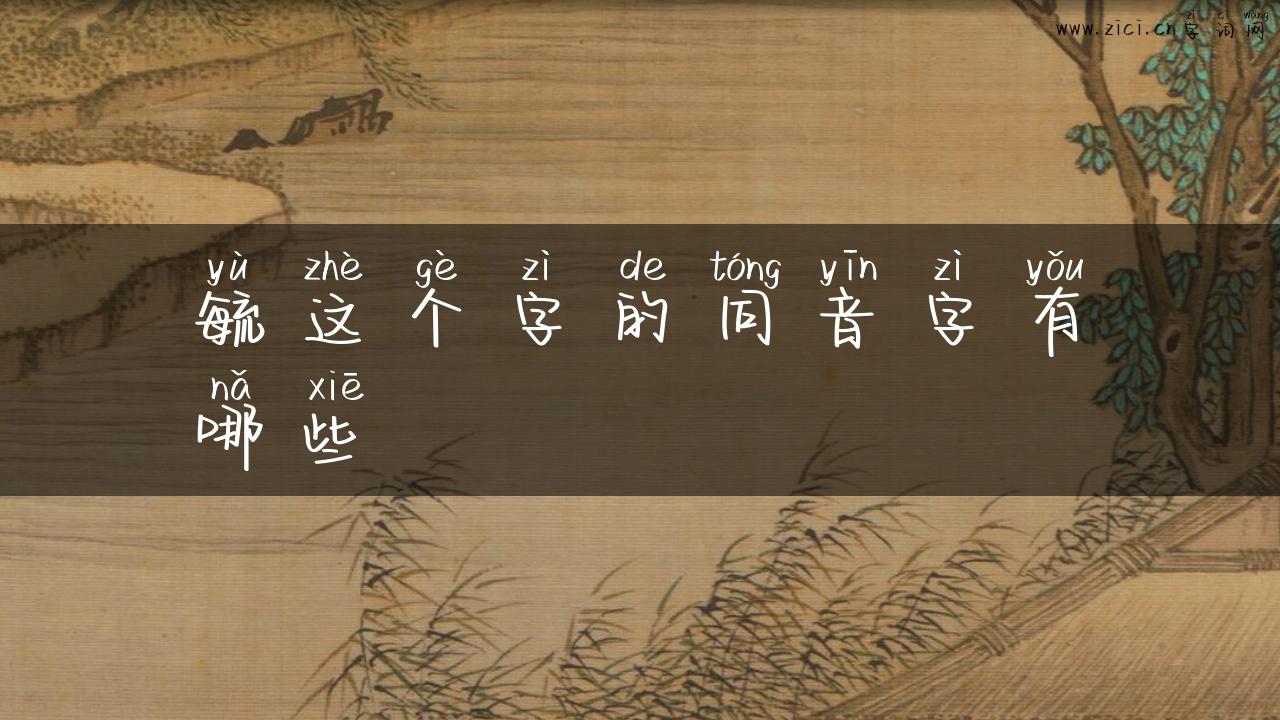 zì cí wǎng
www.zici.cn字词网
yù zhè gè zì de tóng yīn zì yǒu
毓这个字的同音字有
nǎ xiē
哪些